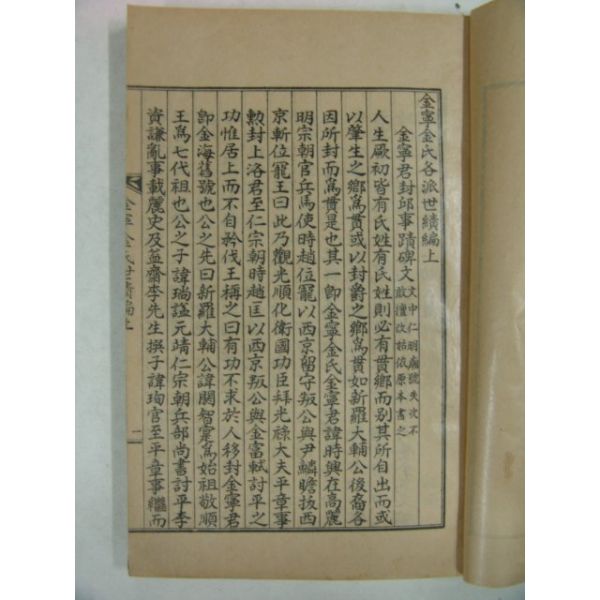 金寧金氏各派世績編上
金寧君封邱事蹟碑文 文中仁明廟號失次不
敢擅改姑依原本書之
人生厥初皆有氏姓有氏姓則必有貫鄉而別其所自出而或
以肇生之鄉爲貫或以封爵之鄉爲貫如新羅大輔公後裔各
因所封而爲貫是也其一卽金寧金氏金寧君諱時興在高麗
明宗朝官兵馬使時趙位寵以西京留守叛公與尹鱗瞻拔西
京斬位寵王曰此乃觀光順化衛國功臣拜光祿大夫平章事
勳封上洛君至仁宗朝時趙匡以西京叛公與金富軾討平之
功惟居上而不自矜伐王稱之曰有功不求於人移封金寧君
卽金海舊號也公之先曰新羅大輔公諱閼智寔爲始祖敬順
王爲七代祖也公之子諱瑞謚元靖仁宗朝兵部尚書討平李
資謙亂事載麗史及益齋李先生撰子諱珣官至平章事繼而
金寧金氏世績編上
一